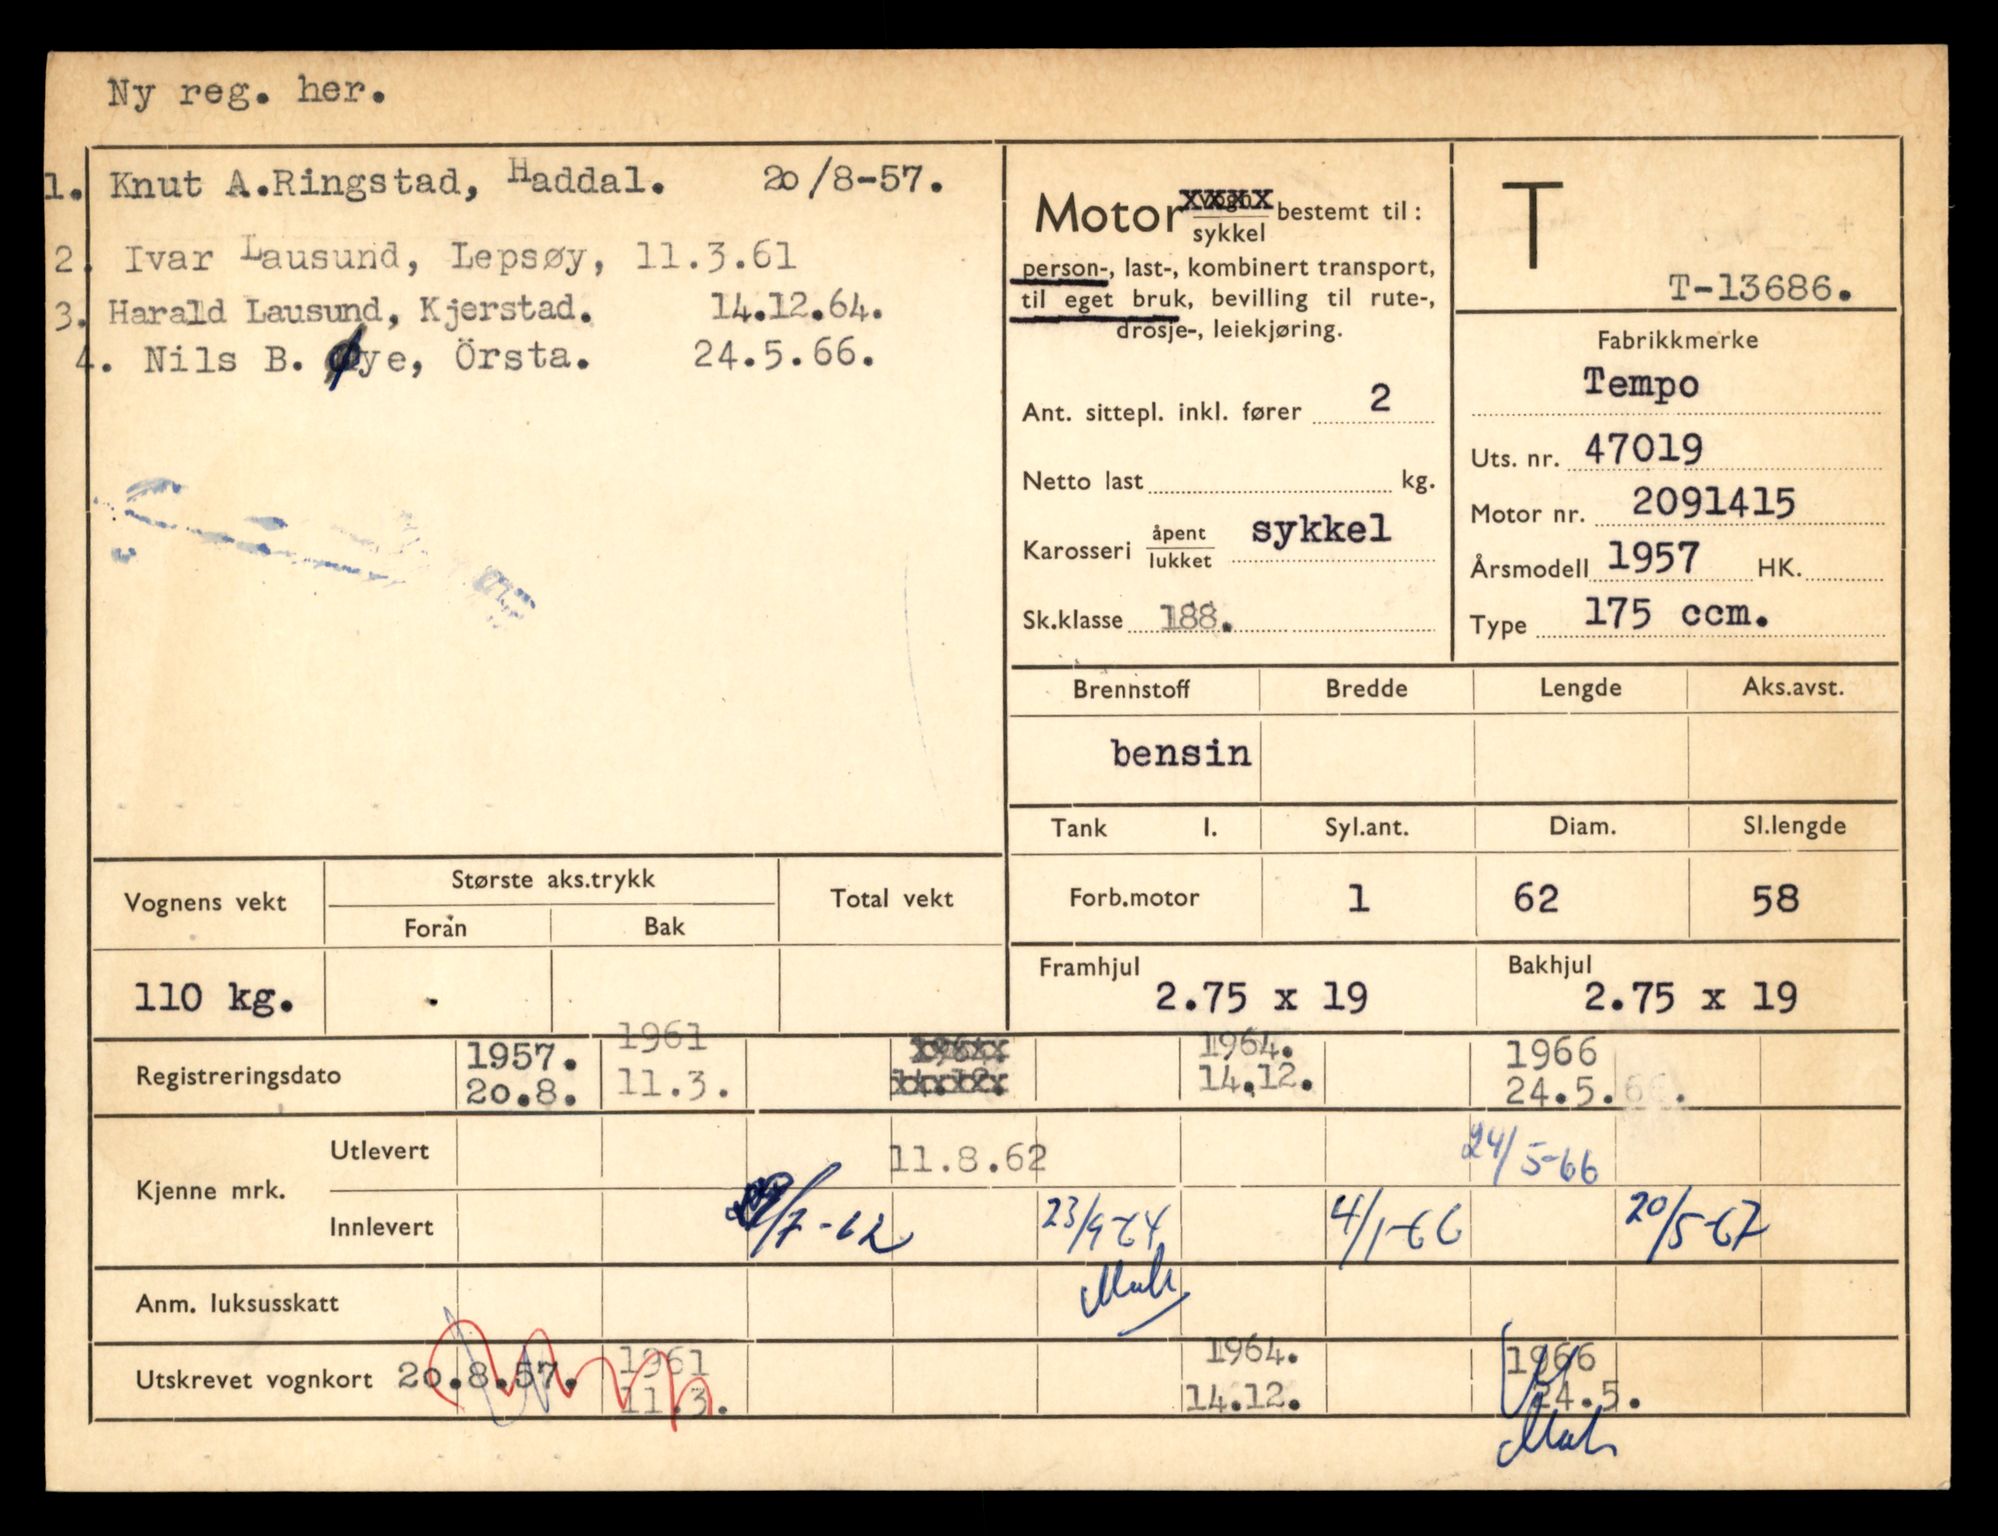 Ny reg. her.
1. Knut A.Ringstad, Haddal. 20/8-57.
2. Ivar Lausund, Lepsøy, 11.3.61
3. Harald Lausund, Kjerstad. 14.12.64.
4. Nils B. Øye, Örsta. 24.5.66.
Motor vogn sykkel bestemt til :
person-, last-, kombinert transport,
til eget bruk, bevilling til rute-,
drosje-, leiekjøring.
Ant. sittepl. inkl. fører 2
Netto last kg.
Karosseri åpent lukket sykkel
Sk.klasse 188.
T
T-13686.
Fabrikkmerke
Tempo
Uts. nr. 47019
Motor nr. 2091415
Årsmodell 1957 HK.
Type 175 ccm.
Brennstoff Bredde Lengde Aks.avst.
bensin
Tank l. Syl.ant. Diam. Sl.lengde
Forb.motor 1 62 58
Framhjul 2.75 x 19 Bakhjul 2.75 x 19
Vognens vekt Største aks.trykk Total vekt
Foran Bak
110 kg.
Registreringsdato 1957. 1961 1964. 1966
20.8. 11.3. 14.12. 24.5.66.
Kjenne mrk. Utlevert 11.8.62 24/5-66
Innlevert /7-62 23/9-64 4/1-66 20/5-67
Anm. luksusskatt
Utskrevet vognkort 20.8.57. 1961 1964. 1966
11.3. 14.12. 24.5.